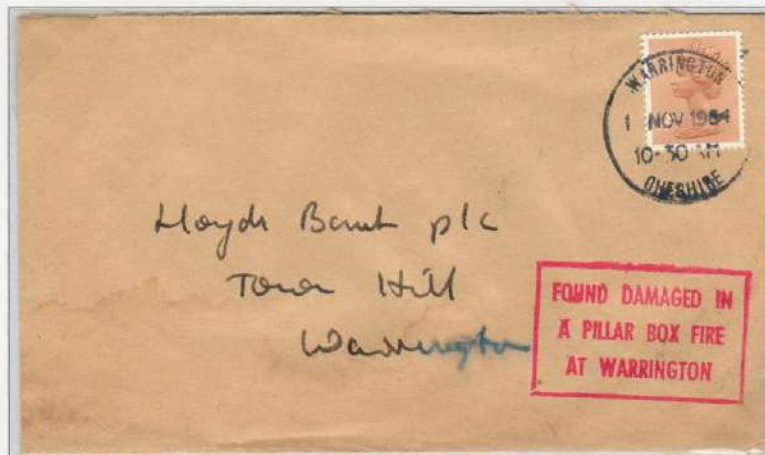 WARRINGTON
1 NOV 1984
10-30 AM
CHESHIRE
Lloyds Bank plc
Town Hill
Warrington
FOUND DAMAGED IN
A PILLAR BOX FIRE
AT WARRINGTON